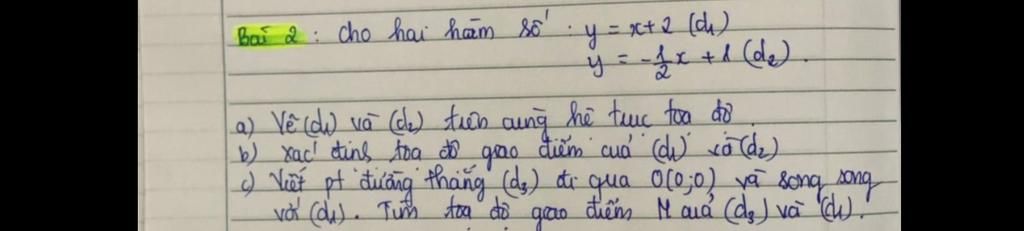 Bài 2 : cho hai hàm số : y = x+2 (d₁)
y = -1/2x + 1 (d₂).
a) Vẽ (d₁) và (d₂) trên cùng hệ trục tọa độ.
b) xác định tọa độ giao điểm của (d₁) và (d₂)
c) Viết pt đường thẳng (d₃) đi qua O(0;0) và song song
với (d₁). Tìm tọa độ giao điểm M của (d₃) và (d₁).